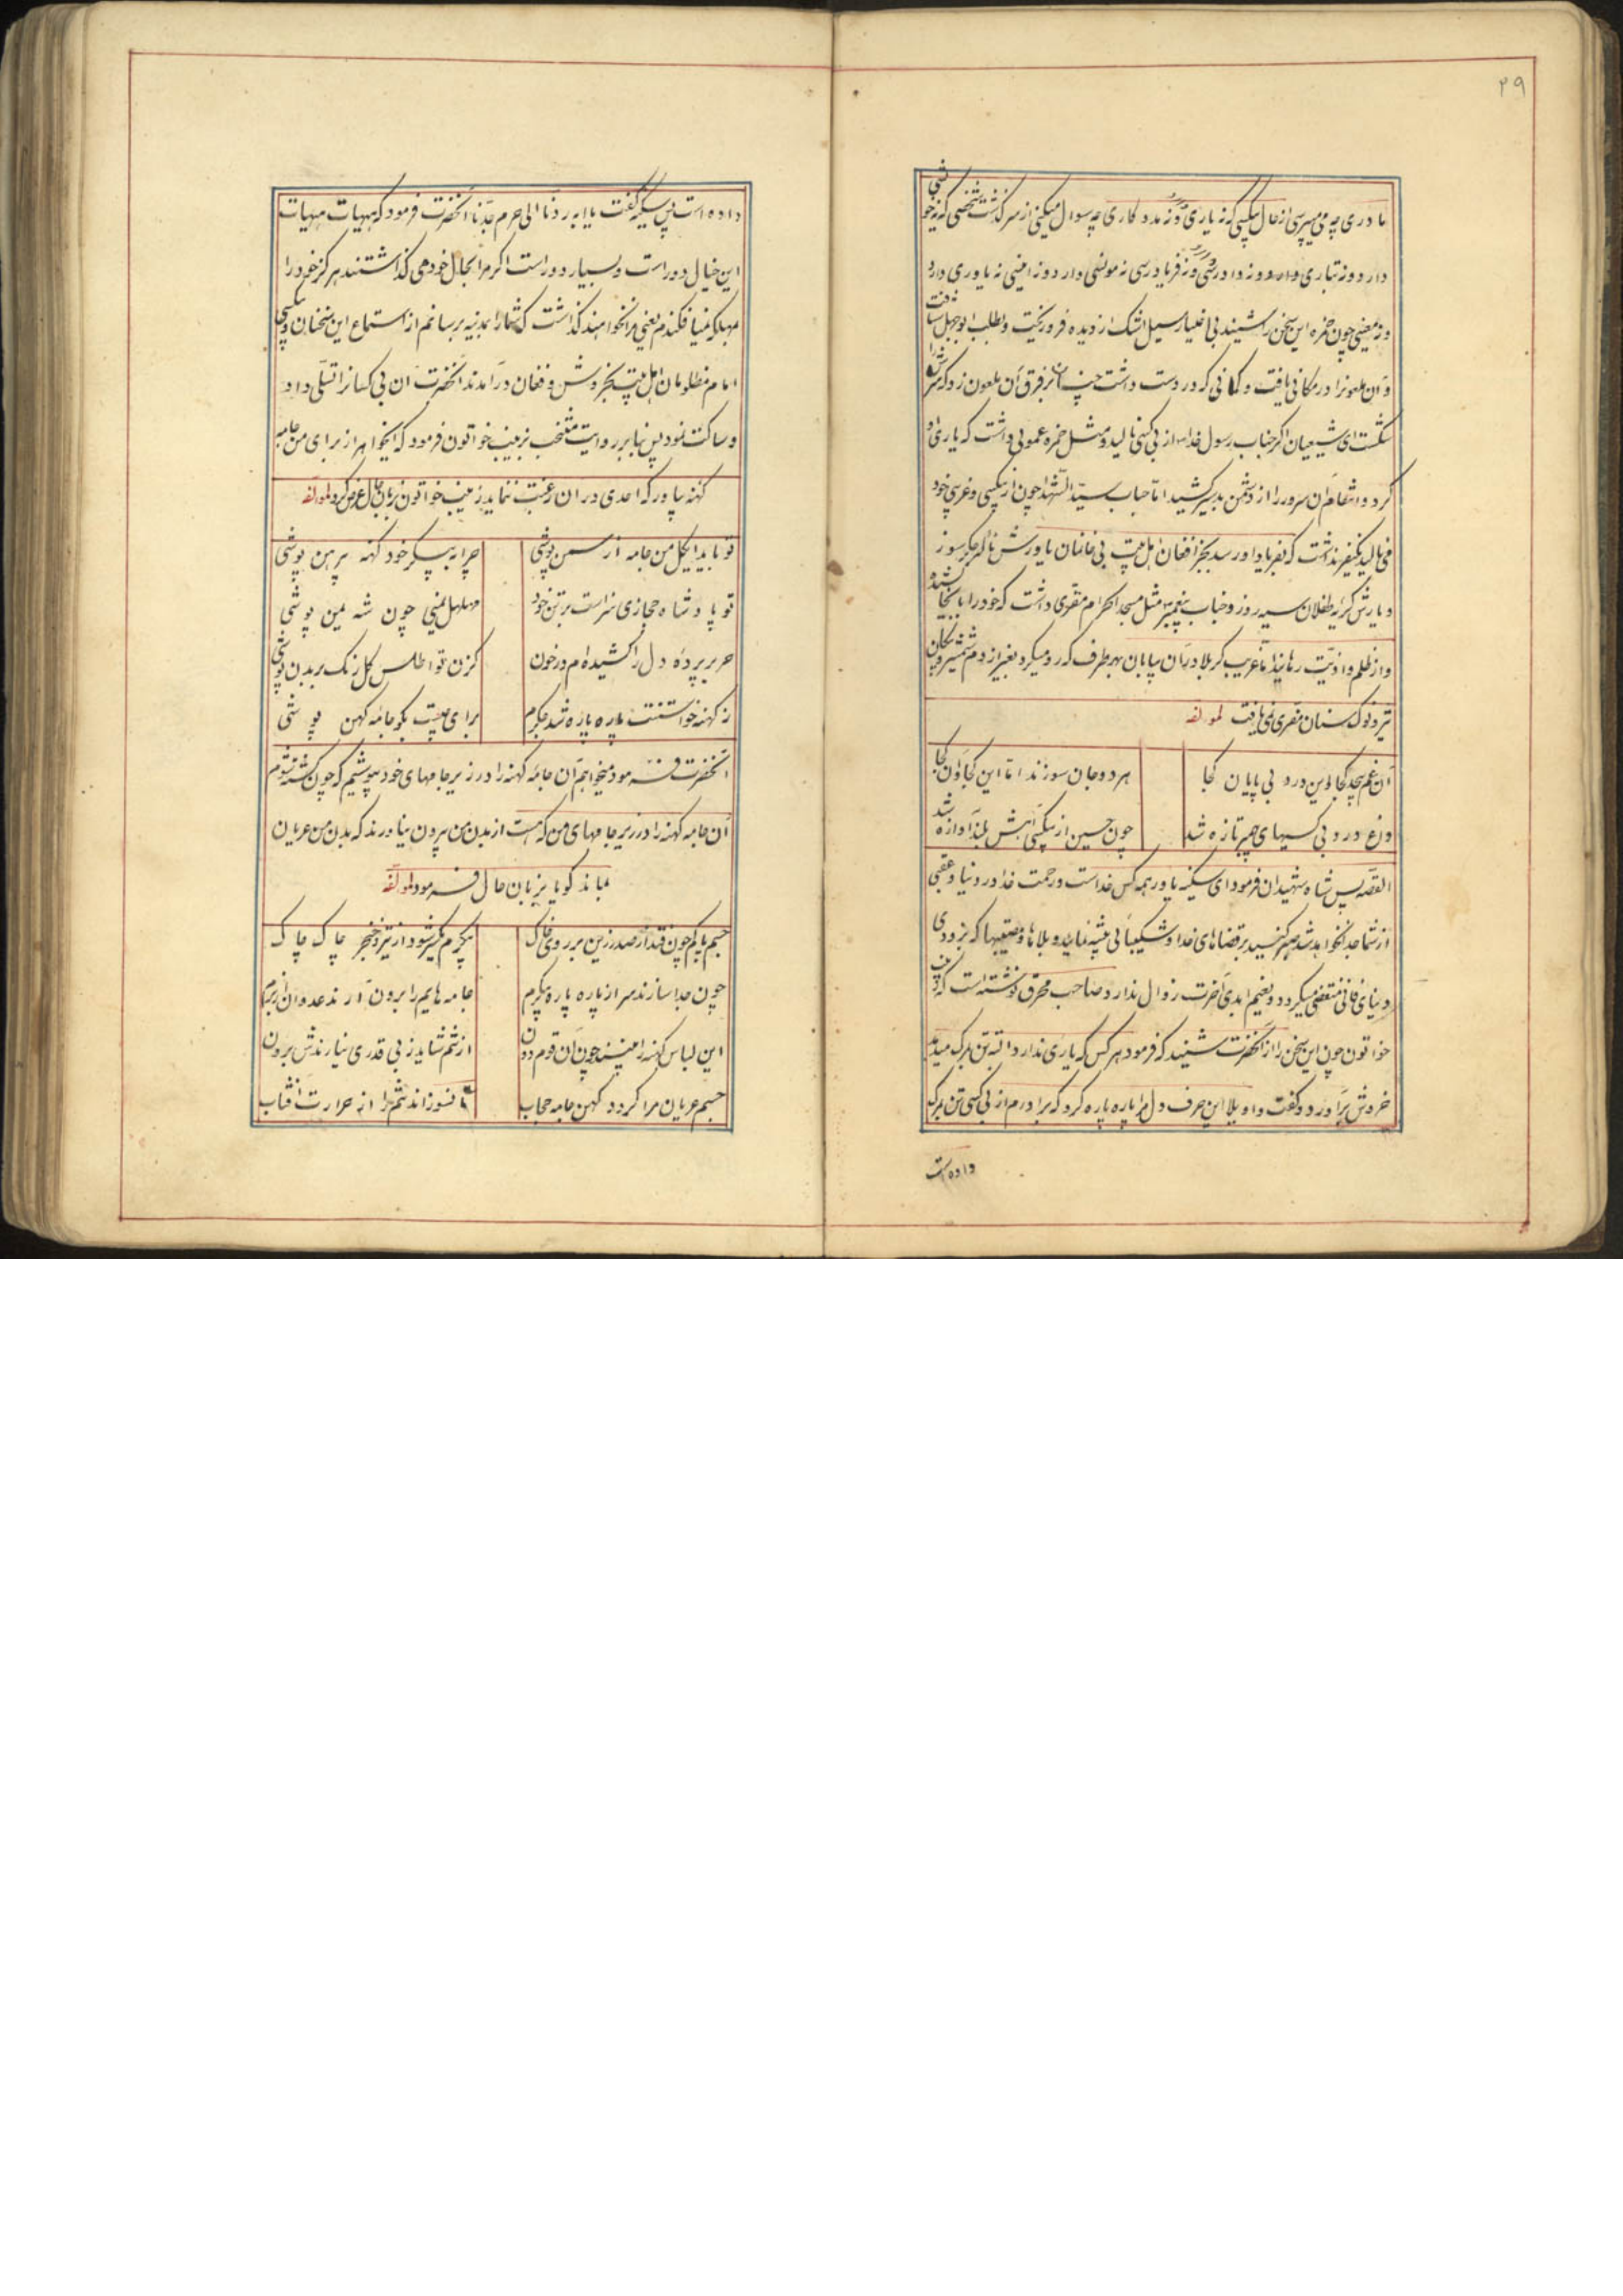 ۲۹
مادری چه می‌پرسی از حال بیکسی که نه یاری دارد و نه مددکاری چه سوال میکنی از سرگذشت شخصی که نه خویشی
دارد و نه تباری دارد و نه دادرسی و نه فریادرسی نه مونسی دارد و نه انیسی نه یاوری دارد
و نه معینی چون حمزه این سخن را شنید بی اختیار سیل اشک از دیده فرو ریخت و بطلب ابوجهل شتافت
و آن ملعونرا در مکانی یافت و کمانی که در دست داشت چنان بر فرق آن ملعون زد که سرش را
شکست ای شیعیان اگر جناب رسول خدا از بی کسی نالید و مثل حمزه عمویی داشت که یاری او
کرد و انتقام آن سرور را از دشمن بدسیر کشید اما جناب سید الشهدا چون از بیکسی و غریبی خود
می نالید یکنفر نداشت که بفریاد او رسد بجز افغان اهل بیت بی خانمان یاورش ناله جگر سوز
و یارش گریه طفلان سیه روز و جناب پیغمبر مثل مسجد الحرام مقری داشت که خود را بانجا کشید
و از ظلم و اذیت رهانید اما غریب کربلا در آن بیابان بهر طرف که رو میکرد بغیر از دم شمشیر و پیکان
تیر و نوک سنان مقری نمی یافت لمؤلفه
آن غم بیحد کجا و این درد بی پایان کجا هر دو جان سوزند اما این کجا و آن کجا
داغ درد بی کسیهای پیمبر تازه شد چون حسین از بیکسی آهش بلند آوازه شد
القصه پس شاه شهیدان فرمود ای سکینه یاور همه کس خداست و رحمت خدا در دنیا و عقبی
از شما جدا نخواهد شد صبر کنید بر قضاهای خدا و شکیبائی پیشه نمائید و بلاها و مصیبتها که بزودی
دنیای فانی منقضی میگردد و نعیم ابدی آخرت زوال ندارد و صاحب محرق نوشته است که زینب
خواتون چون این سخن را از آنحضرت شنید که فرمود هر کس که یاری ندارد البته تن بمرگ میدهد
خروش برآورد و گفت واویلا این حرف دل مرا پاره پاره کرد که برادرم از بی کسی تن بمرگ
داده است
داده است پس سکینه گفت یا ابه ردنا الی حرم جدنا آنحضرت فرمود که هیهات هیهات
این خیال دور است و بسیار دور است اگر مرا بحال خود می گذاشتند هرگز خود را
بمهلکه نمیافکندم یعنی مرا نخواهند گذاشت که شما را بمدینه برسانم از استماع این سخنان بیکسی
امام مظلومان اهل بیت بخروش و فغان درآمدند آنحضرت آن بی کسانرا تسلی داد
و ساکت نمود پس بنابر روایت منتخب بزینب خواتون فرمود که ای خواهر از برای من جامه
کهنه بیاور که احدی در آن رغبت ننماید زینب خواتون بزبان حال عرض کرد لمؤلفه
تو باید ای گل من جامه از سمن پوشی چرا به پیکر خود کهنه پیرهن پوشی
تو پادشاه حجازی سزاست بر تن خود مهلهل یمنی چون شه یمن پوشی
حریر پرده دل را کشیده‌ام در خون کزان تو اطلس گلرنگ بر بدن پوشی
ز کهنه خواستنت پاره پاره شد جگرم برای چیست بگو جامه کهن پوشی
آنحضرت فرمود میخواهم آن جامه کهنه را در زیر جامهای خود بپوشم که چون کشته شوم
آن جامه کهنه را در زیر جامهای من که هست از بدن من بیرون نیاورند که بدن من عریان
نماند گویا بزبان حال فرمود لمؤلفه
جسم پاکم چون فتد از صدر زین بر روی خاک پیکرم یکسر شود از تیر و خنجر چاک چاک
چون جدا سازند سر از پاره پاره پیکرم جامه‌هایم را برون آرند عدوان از برم
این لباس کهنه را بینند چون آن قوم دون از تنم شاید ز بی قدری نیارندش برون
جسم عریان مرا گردد کهن جامه حجاب تا نسوزاند تنم را از حرارت آفتاب